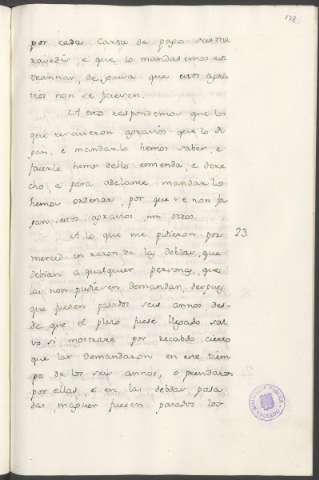 178
por cada carta de pago sesenta
maravedis, e que lo mandasemos es
caminar, de guisa que estos agra
vios non se ficiesen.
A esto respondemos que los
que recivieron agravios que lo di
gan, e mandarlo hemos saber, e
facerle hemos dello emienda, e dere
cho, e para adelante mandarlo
hemos ordenar, por que se non fa
gan estos agravios, nin otros.
A lo que me pidieron por 23
merced en razon de las debdas, que
debian a qualquier personas, que
las non pudiesen demandar, despues
que fuesen pasados seis annos des
de que el plazo fuese llegado sal
vo si mostrare por recabdo cierto
que las demandaron en este tiem
po de los seis annos, o prendaron
por ellas, e en las debdas pasa
das maguer fuesen pasados los